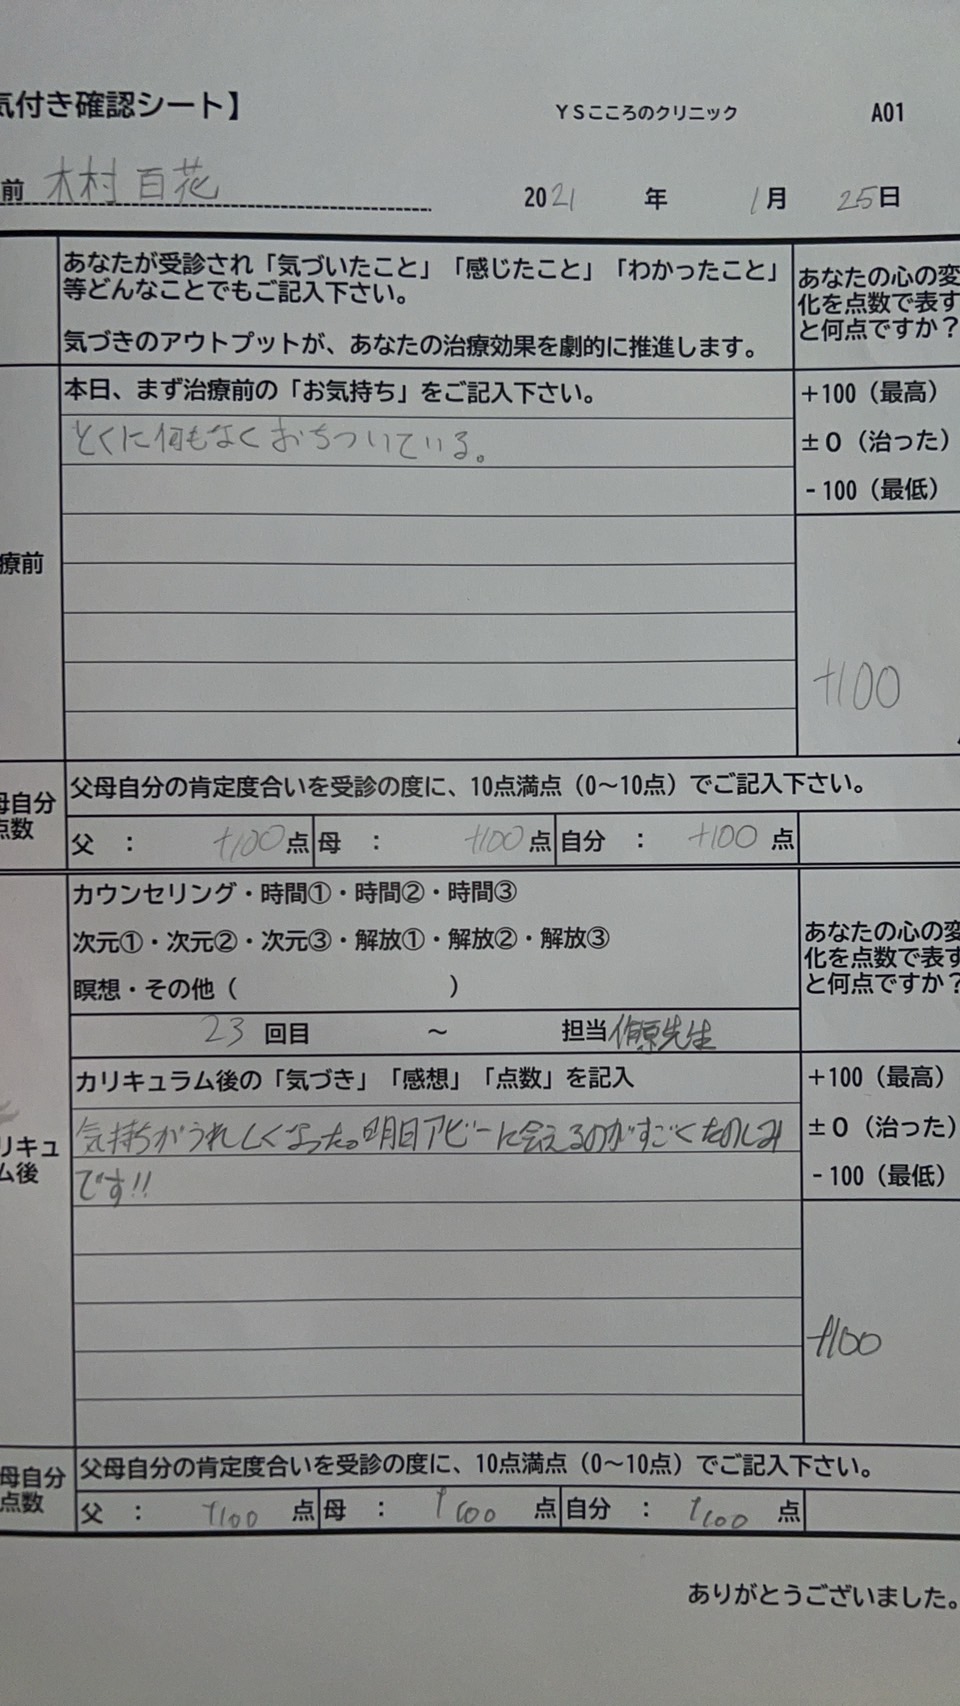 気付き確認シート】
YSこころのクリニック A01
前 木村 百花
2021 年 1月 25日
あなたが受診され「気づいたこと」「感じたこと」「わかったこと」
等どんなことでもご記入下さい。
気づきのアウトプットが、あなたの治療効果を劇的に推進します。
あなたの心の変
化を点数で表す
と何点ですか？
本日、まず治療前の「お気持ち」をご記入下さい。
+100（最高）
±0（治った）
-100（最低）
とくに何もなくおちついている。
療前
+100
母自分
点数
父母自分の肯定度合いを受診の度に、10点満点（0〜10点）でご記入下さい。
父 ： +100点 母 ： +100点 自分 ： +100 点
カウンセリング・時間①・時間②・時間③
次元①・次元②・次元③・解放①・解放②・解放③
瞑想・その他（ ）
あなたの心の変
化を点数で表す
と何点ですか？
23 回目 〜 担当 先生
カリキュラム後の「気づき」「感想」「点数」を記入
+100（最高）
±0（治った）
-100（最低）
リキュ
ム後
気持ちがうれしくなった。明日アビーに会えるのがすごくたのしみ
です!!
+100
母自分
点数
父母自分の肯定度合いを受診の度に、10点満点（0〜10点）でご記入下さい。
父 ： +100 点 母 ： +100 点 自分 ： +100 点
ありがとうございました。